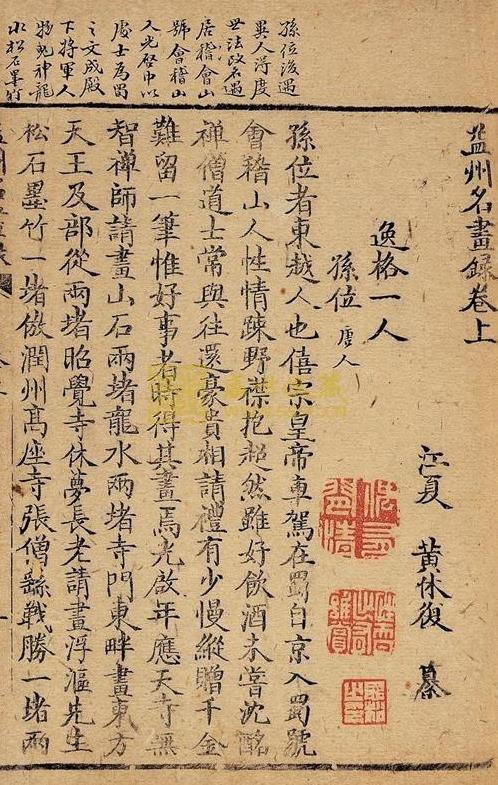 孫位後遇
異人淂度
世法改名遇
居稽會山
號會稽山
人光啓中以
處士為蜀
之文成殿
下将軍人
物鬼神龍
水松石墨竹
益州名畫錄卷上
江夏 黃休復 纂
逸格一人
孫位 唐人
孫位者東越人也僖宗皇帝車駕在蜀自京入蜀號
會稽山人性情踈野襟抱超然雖好飲酒未嘗沈酩
禅僧道士常與往還豪貴相請禮有少慢縱贈千金
難留一筆惟好事者時得其畫焉光啟年應天寺無
智禪師請畫山石兩堵龍水兩堵寺門東畔畫東方
天王及部從兩堵昭覺寺休夢長老請畫浮漚先生
松石墨竹一堵倣潤州高座寺張僧繇戰勝一堵兩